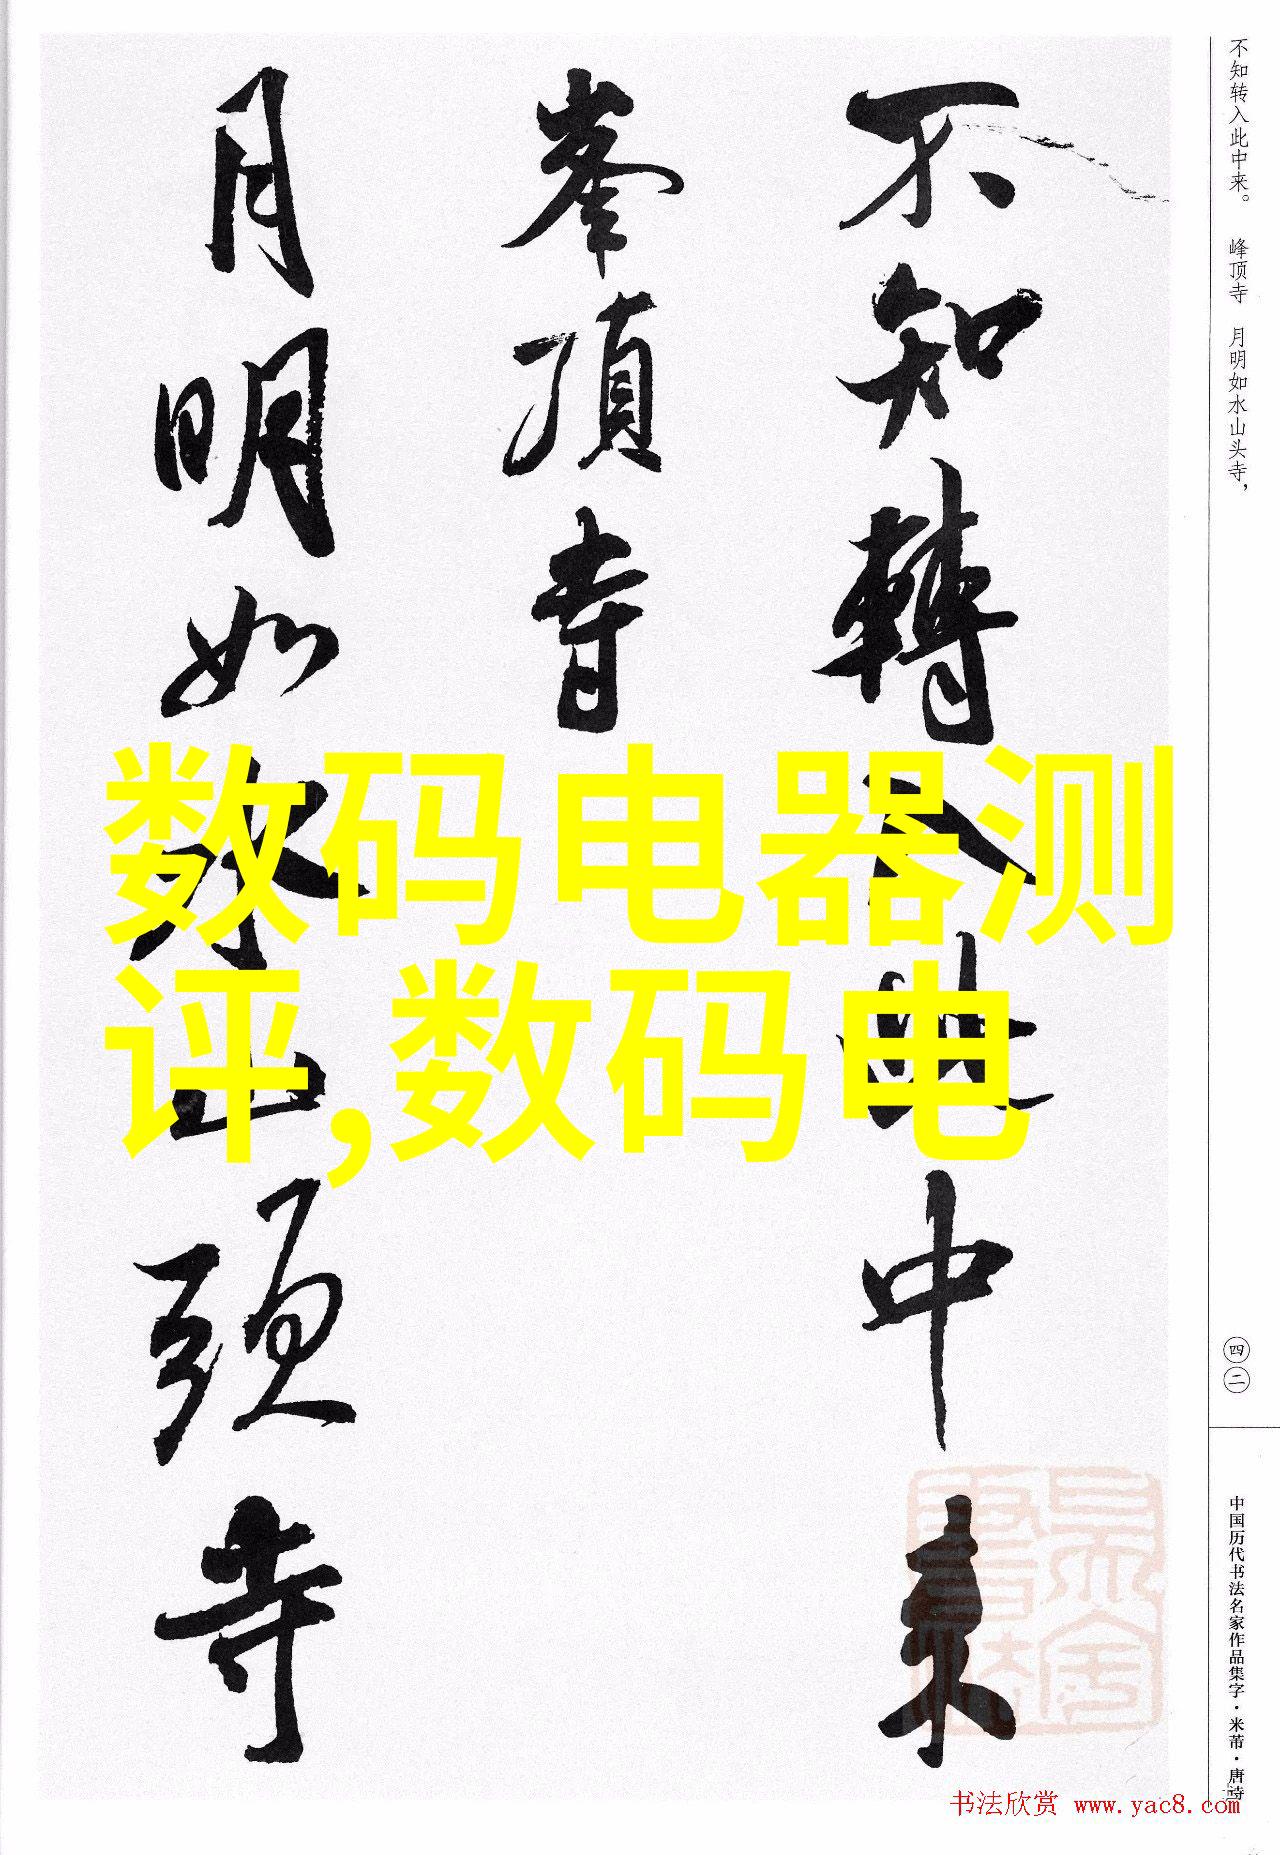 不知轉入此中来
峯頂寺
月明如水山頭寺
数码电器测
评,数码电
不知转入此中来。　峰顶寺　月明如水山头寺，
四二
中国历代书法名家作品集字·米芾·唐诗
书法欣赏 www.yac8.com